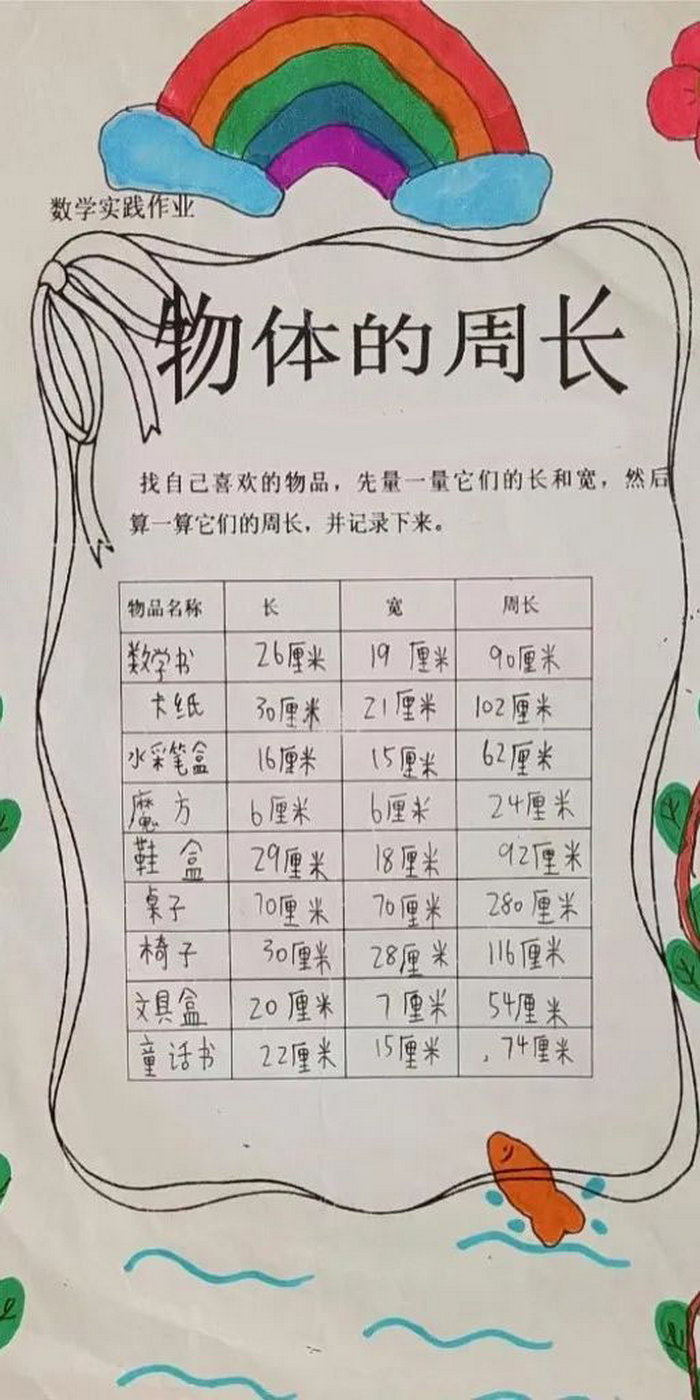 数学实践作业
物体的周长
找自己喜欢的物品，先量一量它们的长和宽，然后
算一算它们的周长，并记录下来。
物品名称 长 宽 周长
数学书 26厘米 19 厘米 90厘米
卡纸 30厘米 21厘米 102厘米
水彩笔盒 16厘米 15厘米 62厘米
魔方 6厘米 6厘米 24厘米
鞋盒 29厘米 18厘米 92厘米
桌子 70厘米 70厘米 280厘米
椅子 30厘米 28厘米 116厘米
文具盒 20厘米 7厘米 54厘米
童话书 22厘米 15厘米 74厘米